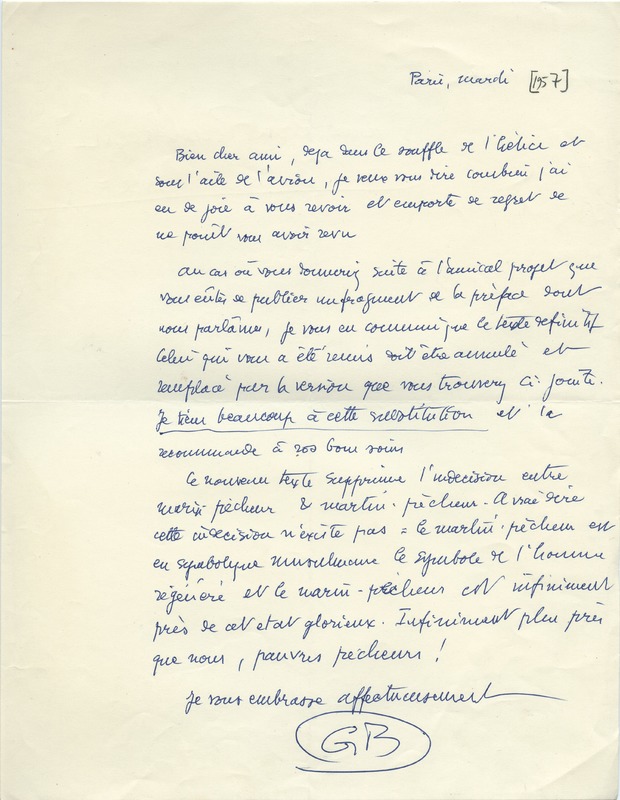 Paris, mardi [1957]
Bien cher ami, deja dans le souffle de l'hélice et
sous l'aile de l'avion, je veux vous dire combien j'ai
eu de joie à vous revoir et emporte de regret de
ne point vous avoir revu
au cas où vous donneriez suite à l'amical projet que
vous eûtes de publier un fragment de la préface dont
nous parlâmes, je vous en communique le texte definitif
Celui qui vous a été remis doit être annulé et
remplacé par la version que vous trouverez ci-jointe.
Je tiens beaucoup à cette substitution et la
recommande à vos bons soins
Ce nouveau texte supprime l'indecision entre
marin pêcheur & martin-pêcheur. A vrai dire
cette indecision n'existe pas = le martin-pêcheur est
en symbolique musulmane le symbole de l'homme
régénéré et le marin-pêcheur est infiniment
près de cet etat glorieux. Infiniment plus près
que nous, pauvres pécheurs !
Je vous embrasse affectueusement
GB